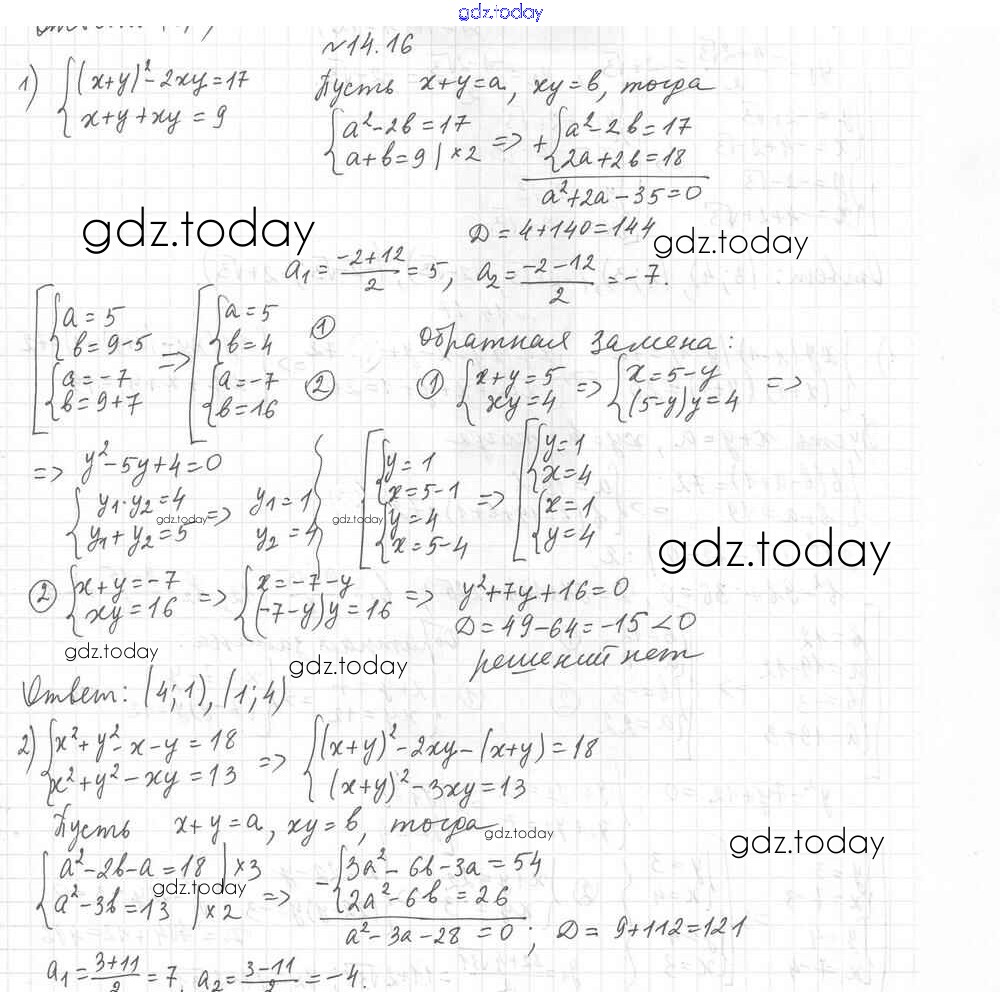 gdz.today
№14.16
1) { (x+y)² - 2xy = 17
x+y+xy = 9
Пусть x+y=a, xy=b, тогда
{ a²-2b=17
a+b=9 | ×2 => + { a²-2b=17
2a+2b=18
a²+2a-35=0
gdz.today
D=4+140=144
gdz.today
a₁ = (-2+12)/2 = 5, a₂ = (-2-12)/2 = -7.
[ { a=5
b=9-5
{ a=-7
b=9+7
=> [ { a=5
b=4 ①
{ a=-7
b=16 ②
Обратная замена:
① { x+y=5
xy=4 => { x=5-y
(5-y)y=4 =>
=> y²-5y+4=0
{ y₁·y₂=4
y₁+y₂=5 => y₁=1
y₂=4 }
gdz.today
[ { y=1
x=5-1
{ y=4
x=5-4
gdz.today
=> [ { y=1
x=4
{ x=1
y=4
gdz.today
② { x+y=-7
xy=16 => { x=-7-y
(-7-y)y=16 => y²+7y+16=0
D=49-64=-15<0
решений нет
gdz.today
gdz.today
Ответ: (4;1), (1;4)
2) { x²+y²-x-y=18
x²+y²-xy=13 => { (x+y)²-2xy-(x+y)=18
(x+y)²-3xy=13
Пусть x+y=a, xy=b, тогда
gdz.today
gdz.today
{ a²-2b-a=18 | ×3
a²-3b=13 | ×2 => - { 3a²-6b-3a=54
2a²-6b=26
gdz.today
a²-3a-28=0; D=9+112=121
a₁ = (3+11)/2 = 7, a₂ = (3-11)/2 = -4.